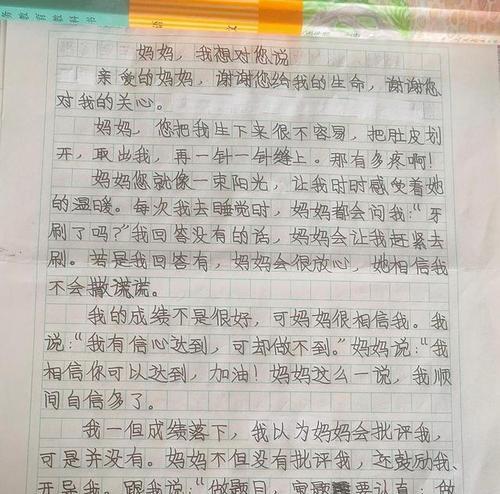 务教育教科书
语
文
妈妈，我想对您说
亲爱的妈妈，谢谢您给我的生命，谢谢您
对我的关心。
妈妈，您把我生下来很不容易，把肚皮划
开，取出我，再一针一针缝上。那有多疼啊！
妈妈您就像一束阳光，让我时时感受着她
的温暖。每次我去睡觉时，妈妈都会问我：“牙
刷了吗？”我回答没有的话，妈妈会让我赶紧去
刷。若是我回答有，妈妈会很放心，她相信我
不会撒谎。
我的成绩不是很好，可妈妈很相信我。我
说：“我有信心达到，可却做不到。”妈妈说：“我
相信你可以达到，加油！妈妈这么一说，我顺
间自信多了。
我一但成绩落下，我以为妈妈会批评我，
可是并没有。妈妈不但没有批评我，还鼓励我、
开导我。跟我说：“做题目，要认真；做